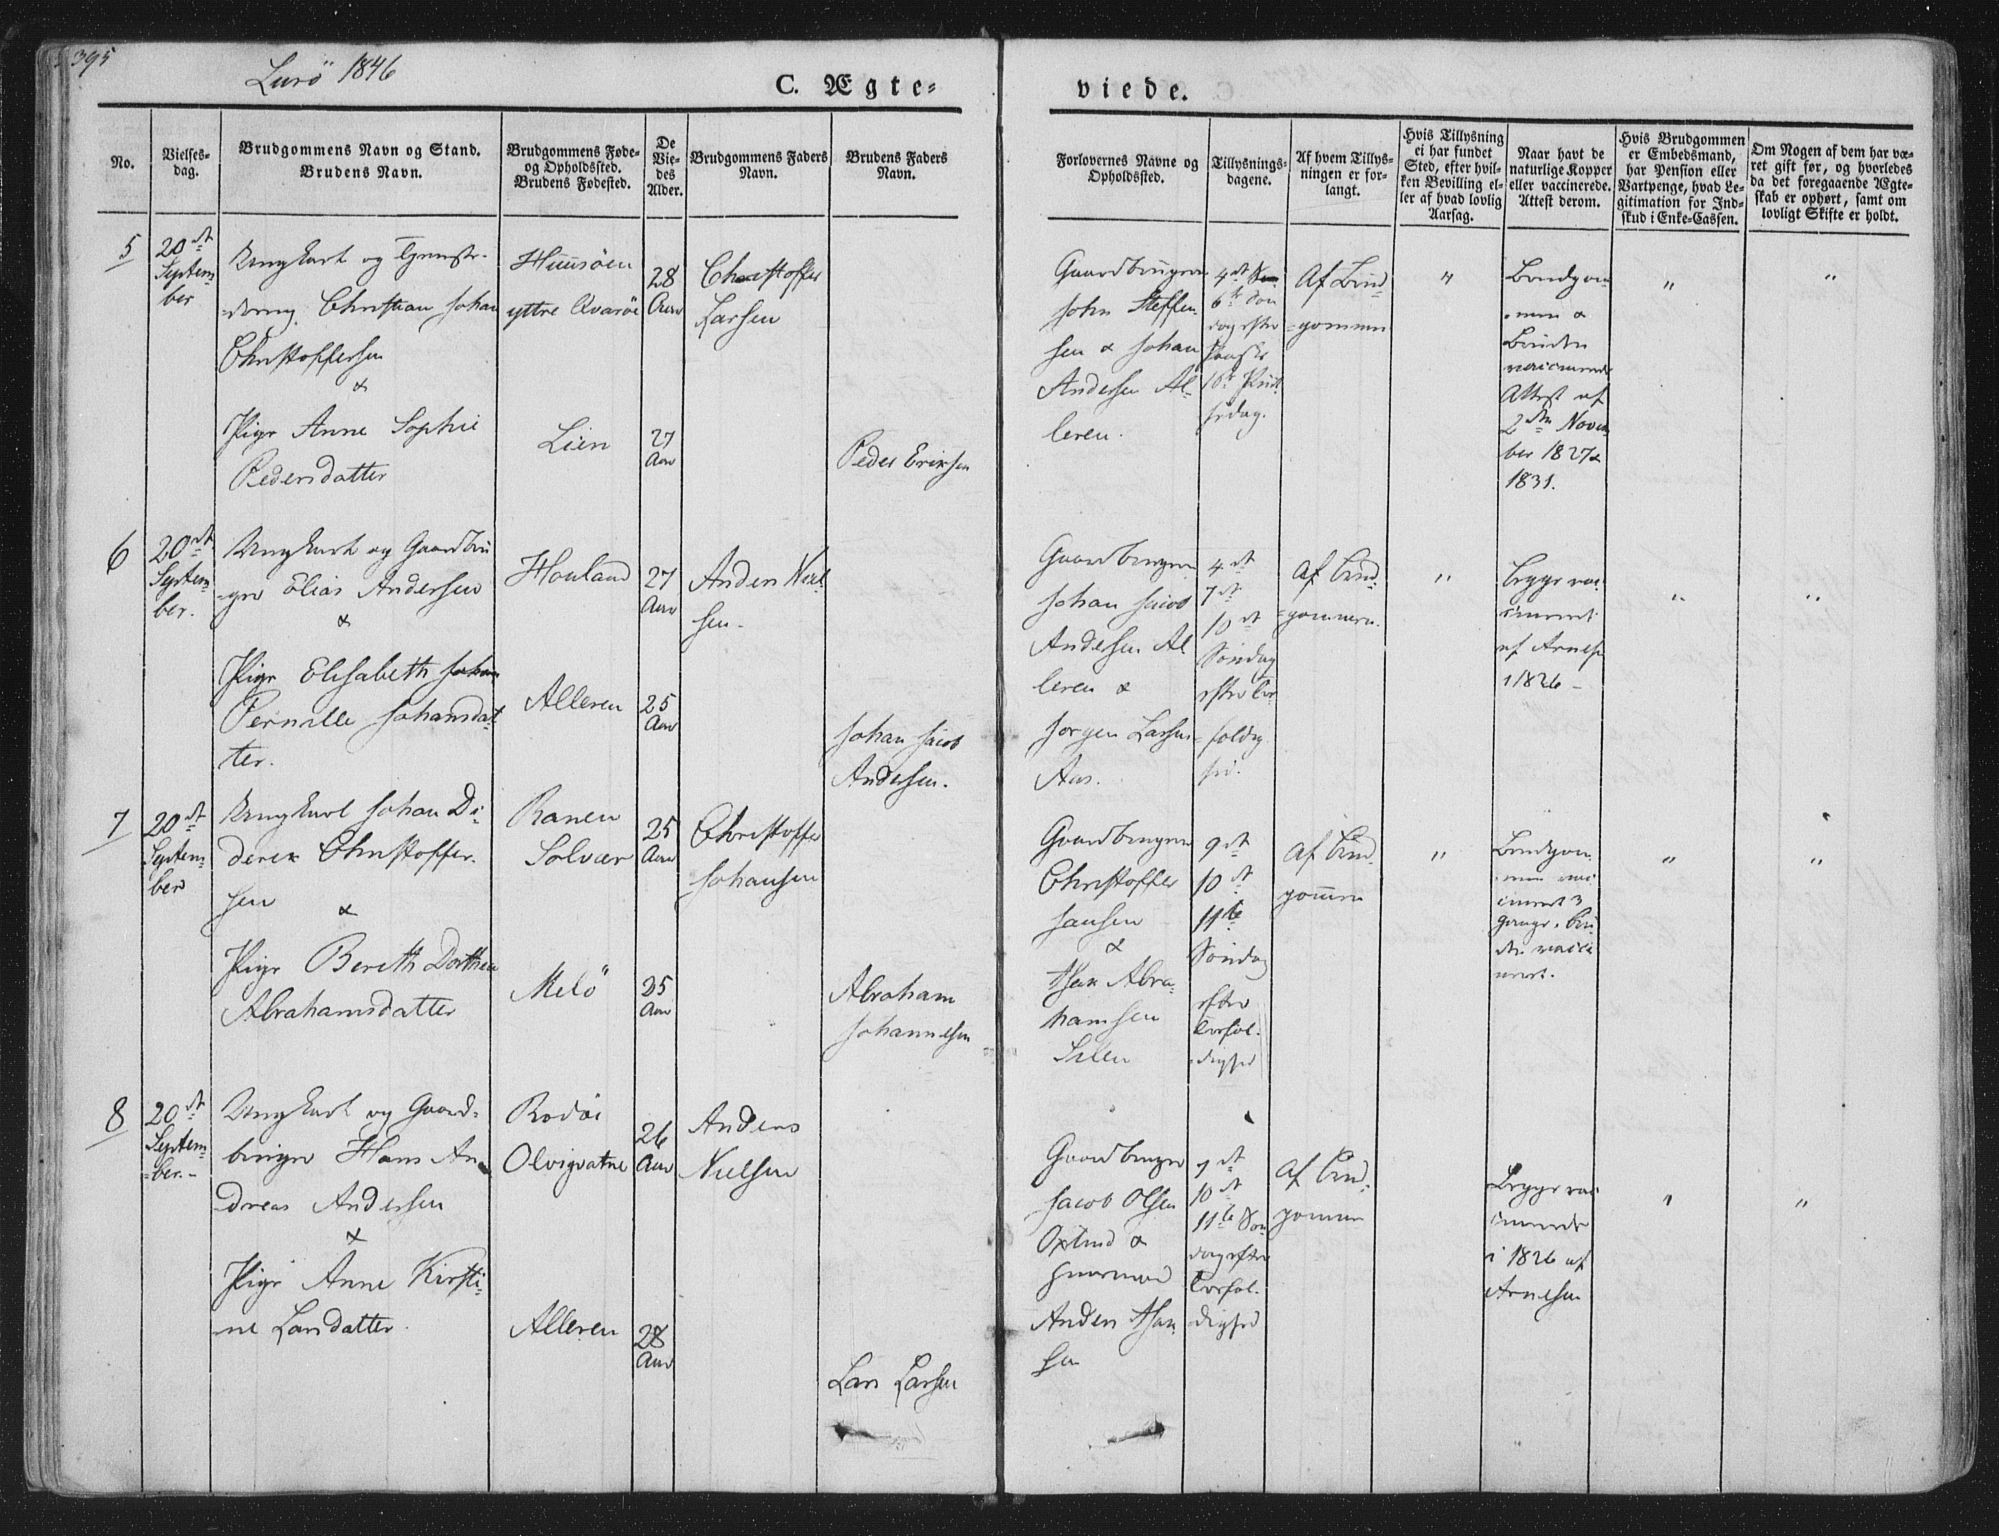 395
Lurö 1846
C. Ægte=
viede.
No.
Vielses=
dag.
Brudgommens Navn og Stand.
Brudens Navn.
Brudgommens Føde=
og Opholdssted.
Brudens Fødested.
De
Vie=
des
Alder.
Brudgommens Faders
Navn.
Brudens Faders
Navn.
Forlovernes Navne og
Opholdssted.
Tillysnings=
dagene.
Af hvem Tillys=
ningen er for=
langt.
Hvis Tillysning
ei har fundet
Sted, efter hvil=
ken Bevilling el=
ler af hvad lovlig
Aarsag.
Naar havt de
naturlige Kopper
eller vaccinerede.
Attest derom.
Hvis Brudgommen
er Embedsmand,
har Pension eller
Vartpenge, hvad Le=
gitimation for Ind=
skud i Enke=Cassen.
Om Nogen af dem har væ=
ret gift før, og hvorledes
da det foregaaende Ægte=
skab er ophørt, samt om
lovligt Skifte er holdt.
5
20de
Septem=
ber
Ungkarl og
Christian Johan
Christoffersen
&
Pige Anne Sophie
Pedersdatter
Huusöen
yttre Qvaröe
Lien
28
Aar
27
Aar
Christoffer
Larsen
Peder Eriksen
Gaardbruger
John Steffen
sen & Johan
Andersen Al=
leren.
4de
6te Søn
dag efter
Af Brud=
gommen
"
Brudgom=
men &
Bruden
vaccinerede
Attest af
2den Novem
ber 1827 &
1831.
"
"
6
20de
Septem=
ber.
Ungkarl og Gaardbru
ger Elias Andersen
&
Pige Elisabeth
Pernille Johansdat
ter.
Houland
Alleren
27
Aar
25
Aar
Anders Niel
sen.
Johan Jacob
Andersen.
Gaardbruger
Johan Jacob
Andersen Al
leren &
Jørgen Larsen
Aas.
4de
7de
10de
Søndag
efter Tre
foldig
hed.
Af Brud=
gommen.
"
Begge vac
cineret
af Arnesen
i 1826
"
"
7
20de
Septem=
ber
Ungkarl Johan Di=
derek Christoffer=
sen
&
Pige Bereth Dorthea
Abrahamsdatter
Ranen
Solvær
Melö
25
Aar
25
Aar
Christoffer
Johansen
Abraham
Johannesen
Gaardbruger
Christoffer
Jansen
&
Isak Abra=
hamsen
Selen
9de
10de
11te
Søndag
efter
Trefol=
dighed
Af Brud=
gommen
"
Brudgom=
men vac
cineret 3
gange, Bru
den vacci
neret.
"
"
8
20de
Septem=
ber.
Ungkarl og Gaard=
bruger Hans An=
dreas Andersen
&
Pige Anne Kirsti=
ne Larsdatter.
Rodöe
Olvigvatne
Alleren
26
Aar
28
Aar
Anders
Nielsen
Lars Larsen
Gaardbruger
Jacob Olsen
&
Anders Han
sen
7de
10de
11te Søn
dag efter
Trefol=
dighed
Af Brud=
gommen
Begge vac
cinerede
i 1826 af
Arnesen
"
"